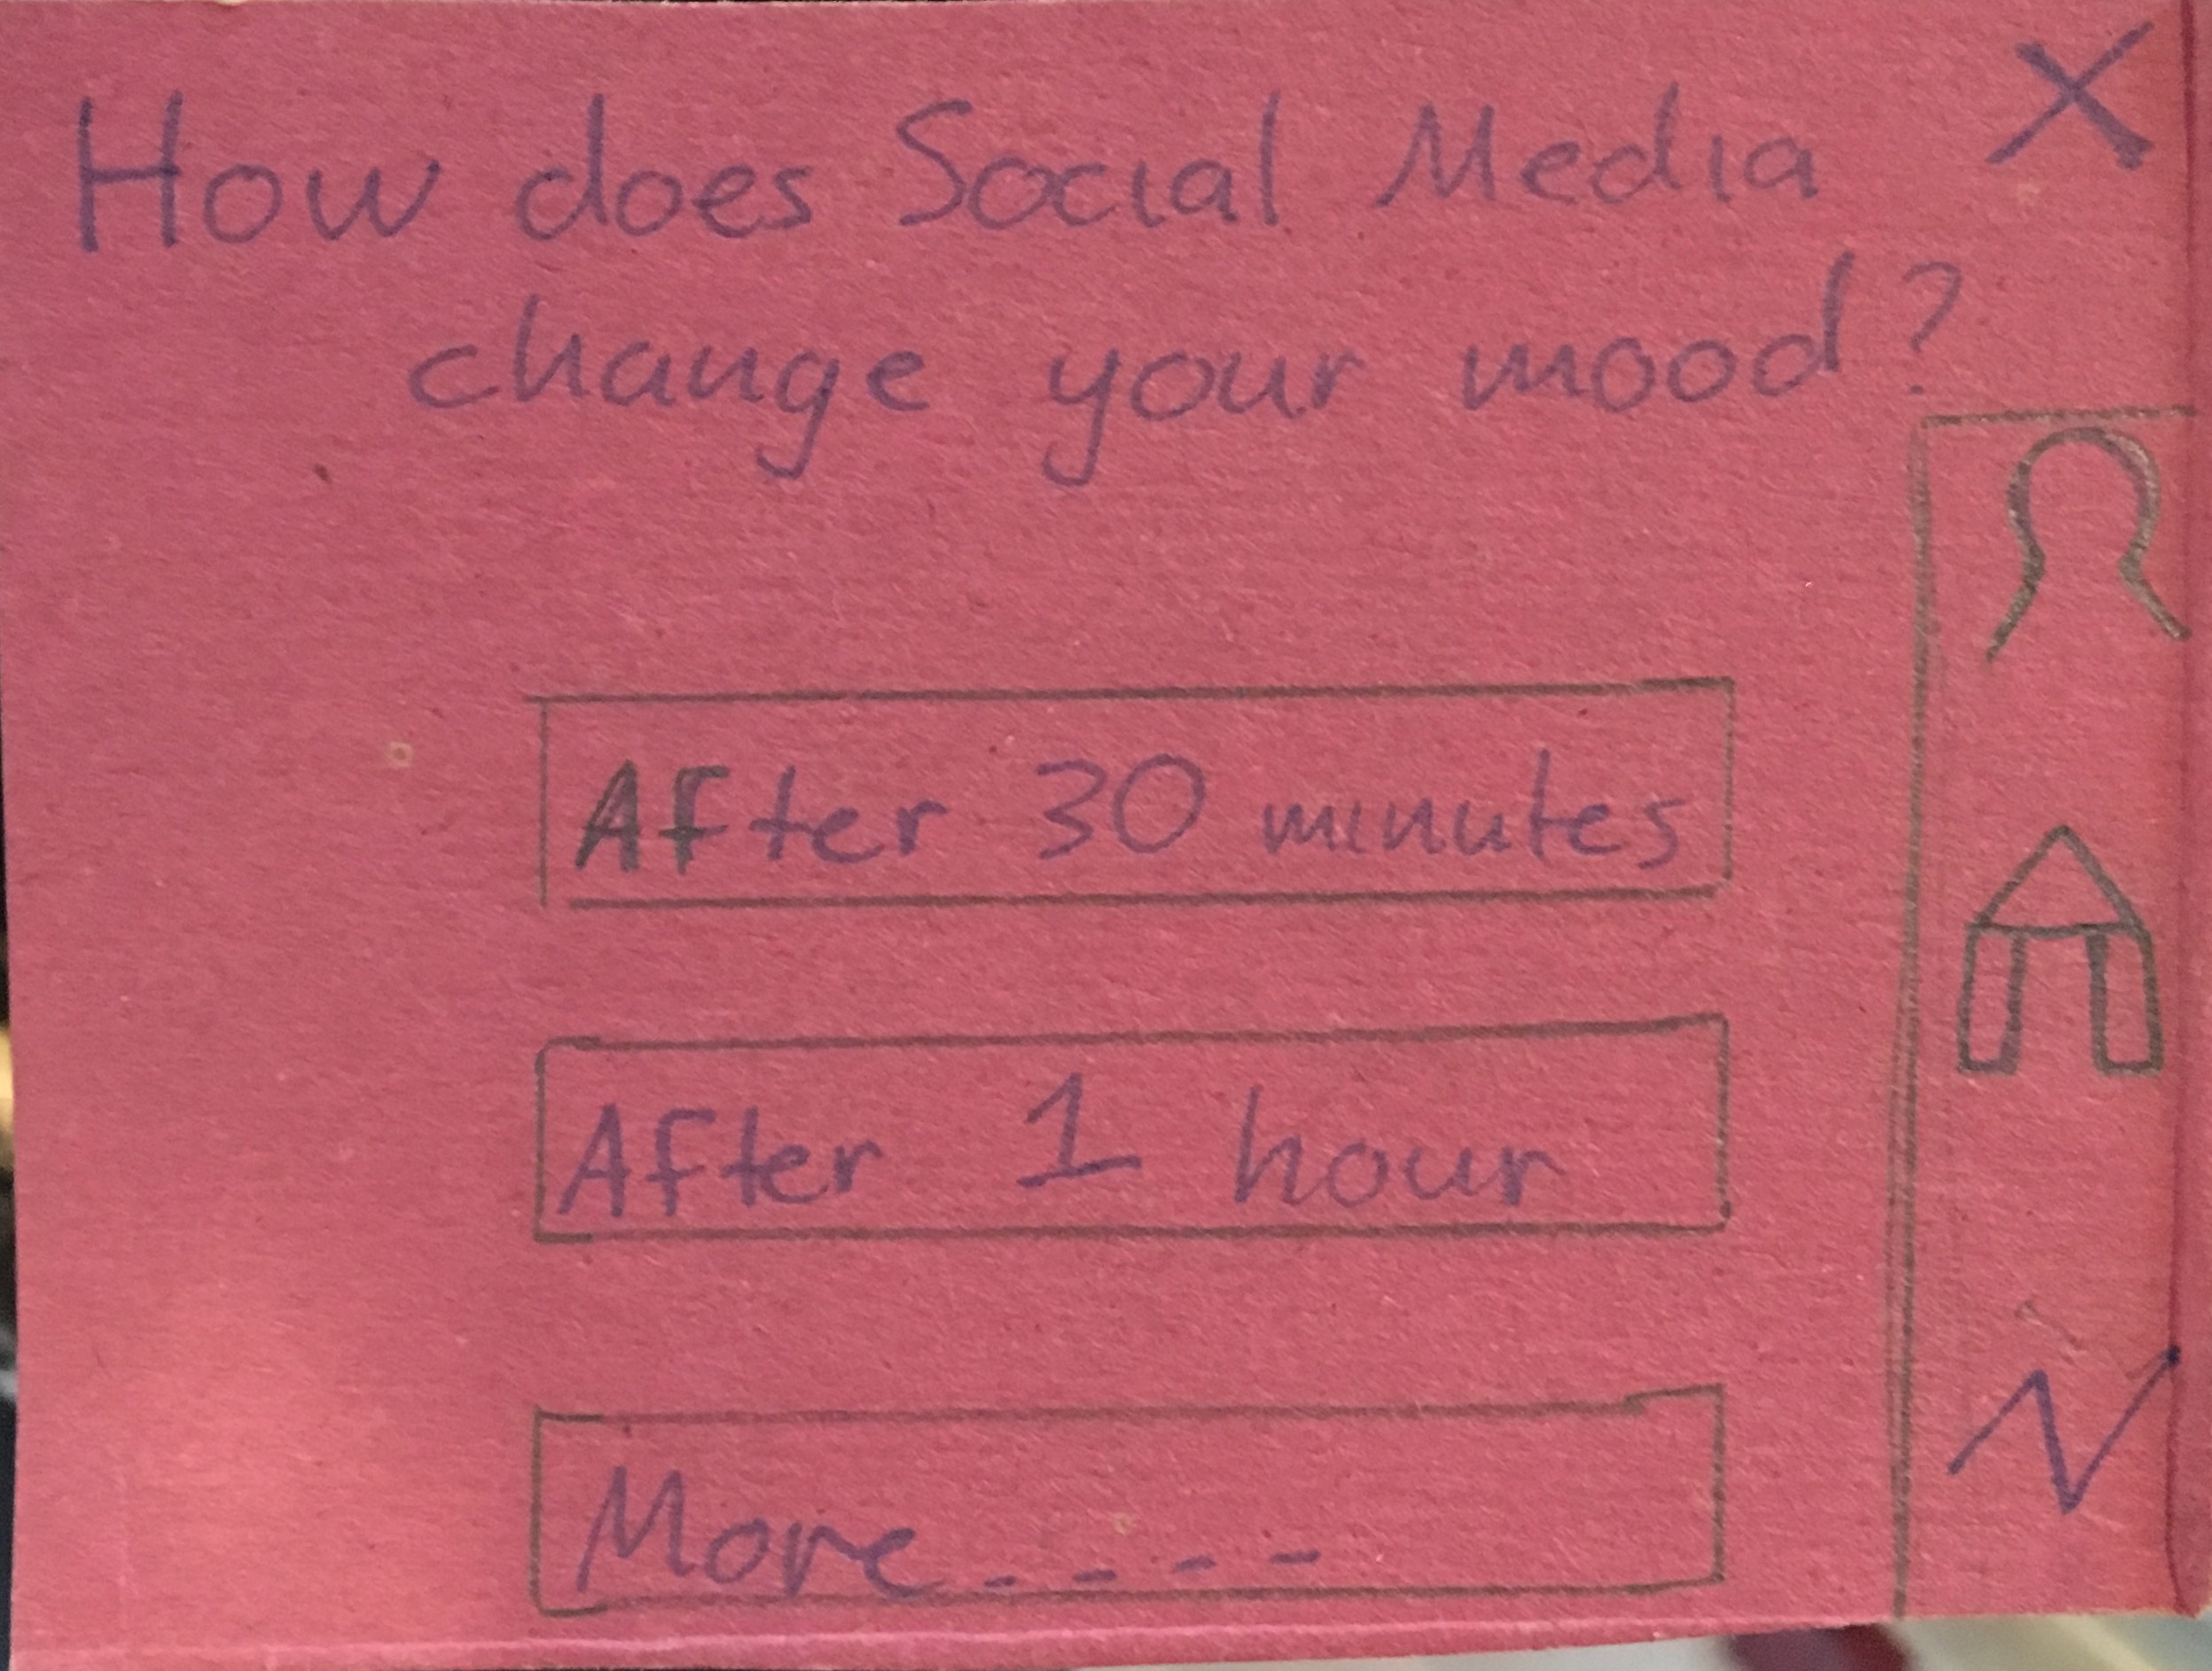 How does Social Media
change your mood?
After 30 minutes
After 1 hour
More....